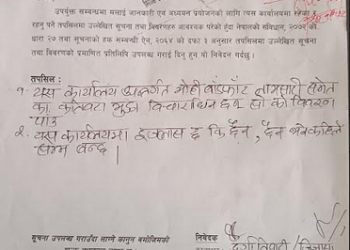 उपयुक्त सम्बन्धमा मलाई जानकारी एवं अध्ययन प्रयोजनको लागि त्यस कार्यालयमा रहेको र
रहनु पर्ने तपसिलमा उल्लेखित सूचना तथा विवरणहरु आवश्यक परेको हुँदा नेपालको संविधान, २०७२ को
धारा २७ तथा सूचनाको हक सम्बन्धी ऐन, २०६४ को दफा ३ अनुसार तपसिलमा उल्लेखित सूचना
तथा विवरणको प्रमाणित प्रतिलिपि उपलब्ध गराई दिनु हुन यो निवेदन गर्दछु।
तपसिलः
१. यस कार्यालय अन्तर्गत मोही बाँडफाँट लगायत
का कतिवटा मुद्दा विचाराधिन छन् सो को विवरण
पाउँ
२. यस कार्यालयमा इजलास छ कि छैन, छैन भने कहिले
बन्द ।
सूचना उपलब्ध गराउँदा लाग्ने कानुन बमोजिमको
निवेदक